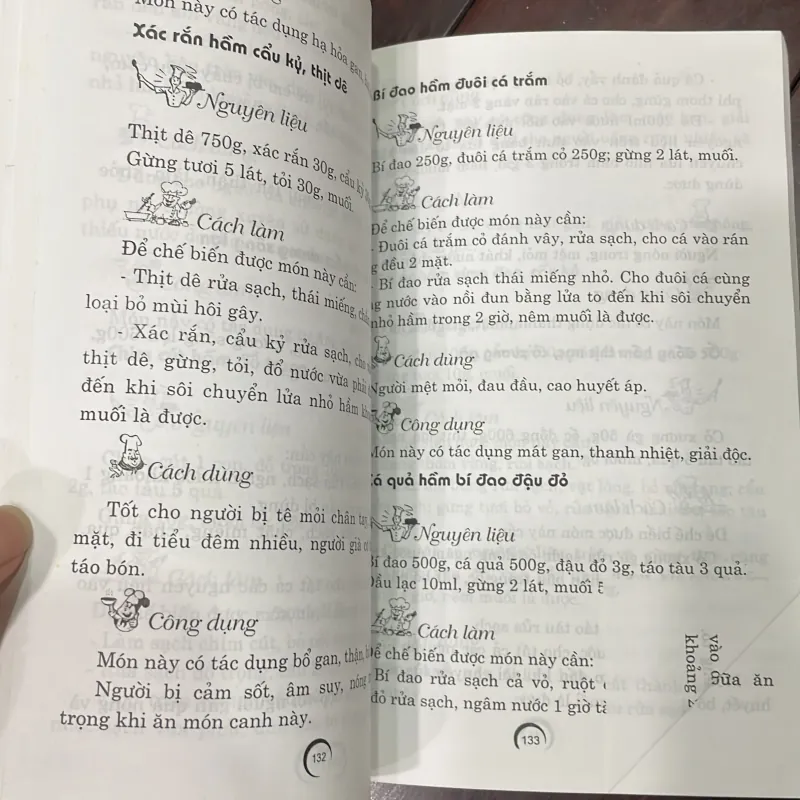 Món này có tác dụng hạ hỏa gan,
Xác rắn hầm cẩu kỷ, thịt dê
Nguyên liệu
Thịt dê 750g, xác rắn 30g, cẩu kỷ
Gừng tươi 5 lát, tỏi 30g, muối.
Cách làm
Để chế biến được món này cần:
- Thịt dê rửa sạch, thái miếng,
loại bỏ mùi hôi gây.
- Xác rắn, cẩu kỷ rửa sạch, cho
thịt dê, gừng, tỏi, đổ nước vừa phải
đến khi sôi chuyển lửa nhỏ hầm
muối là được.
Cách dùng
Tốt cho người bị tê mỏi chân tay
mặt, đi tiểu đêm nhiều, người già
táo bón.
Công dụng
Món này có tác dụng bổ gan, thận,
Người bị cảm sốt, âm suy, nóng
trọng khi ăn món canh này.
132
Bí đao hầm đuôi cá trắm
Nguyên liệu
Bí đao 250g, đuôi cá trắm cỏ 250g; gừng 2 lát, muối.
Cách làm
Để chế biến được món này cần:
- Đuôi cá trắm cỏ đánh vây, rửa sạch, cho cá vào rán
g đều 2 mặt.
- Bí đao rửa sạch thái miếng nhỏ. Cho đuôi cá cùng
g nước vào nồi đun bằng lửa to đến khi sôi chuyển
nhỏ hầm trong 2 giờ, nêm muối là được.
Cách dùng
Người mệt mỏi, đau đầu, cao huyết áp.
Công dụng
Món này có tác dụng mát gan, thanh nhiệt, giải độc.
Cá quả hầm bí đao đậu đỏ
Nguyên liệu
Bí đao 500g, cá quả 500g, đậu đỏ 3g, táo tàu 3 quả.
Dầu lạc 10ml, gừng 2 lát, muối
Cách làm
Để chế biến được món này cần:
Bí đao rửa sạch cả vỏ, ruột
đỏ rửa sạch, ngâm nước 1 giờ
vào
khoảng
ữa ăn
133